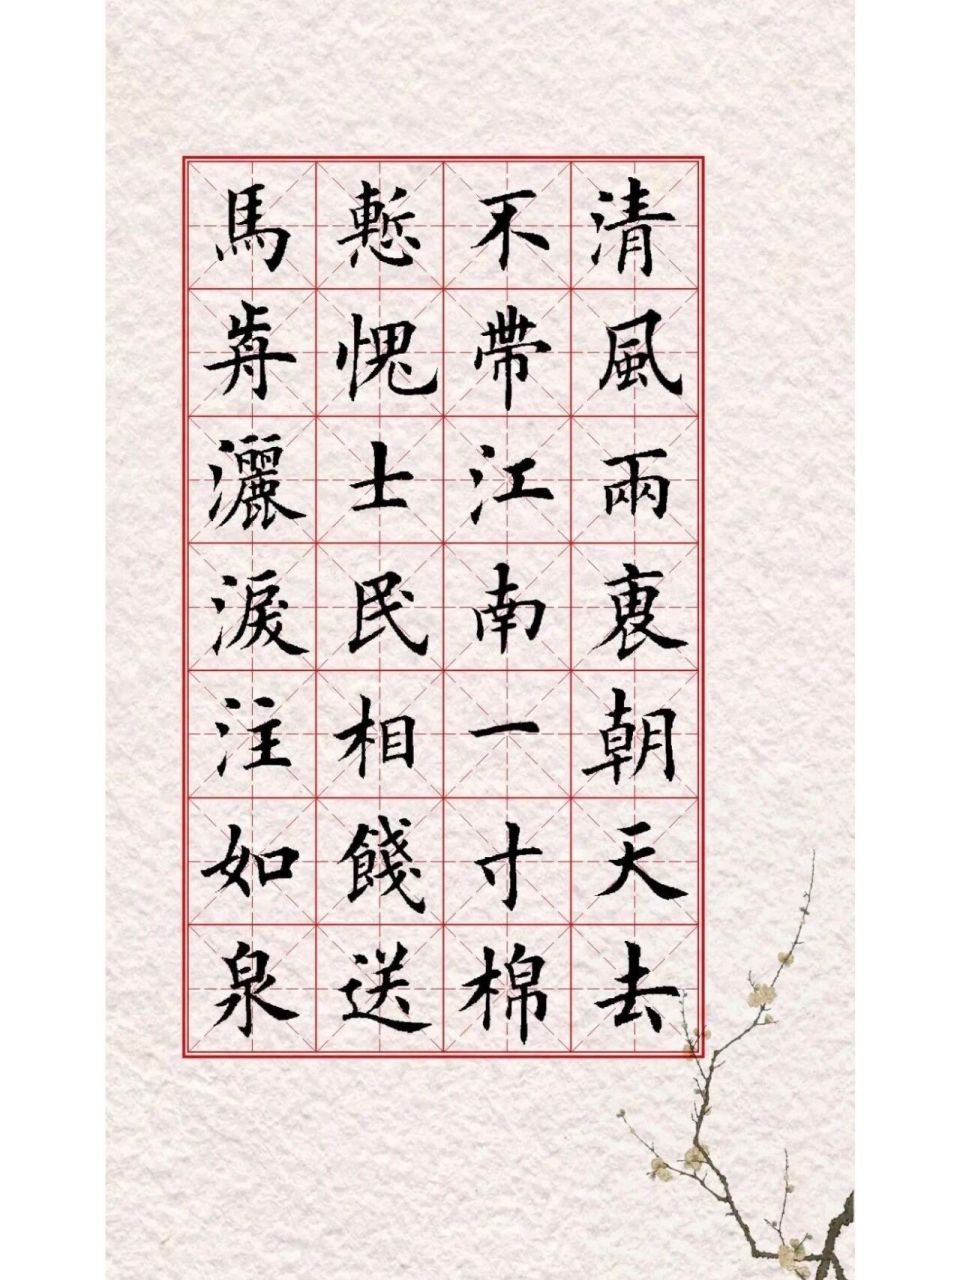 清風兩袖朝天去
不帶江南一寸棉
慙愧士民相餞送
馬歬灑淚注如泉